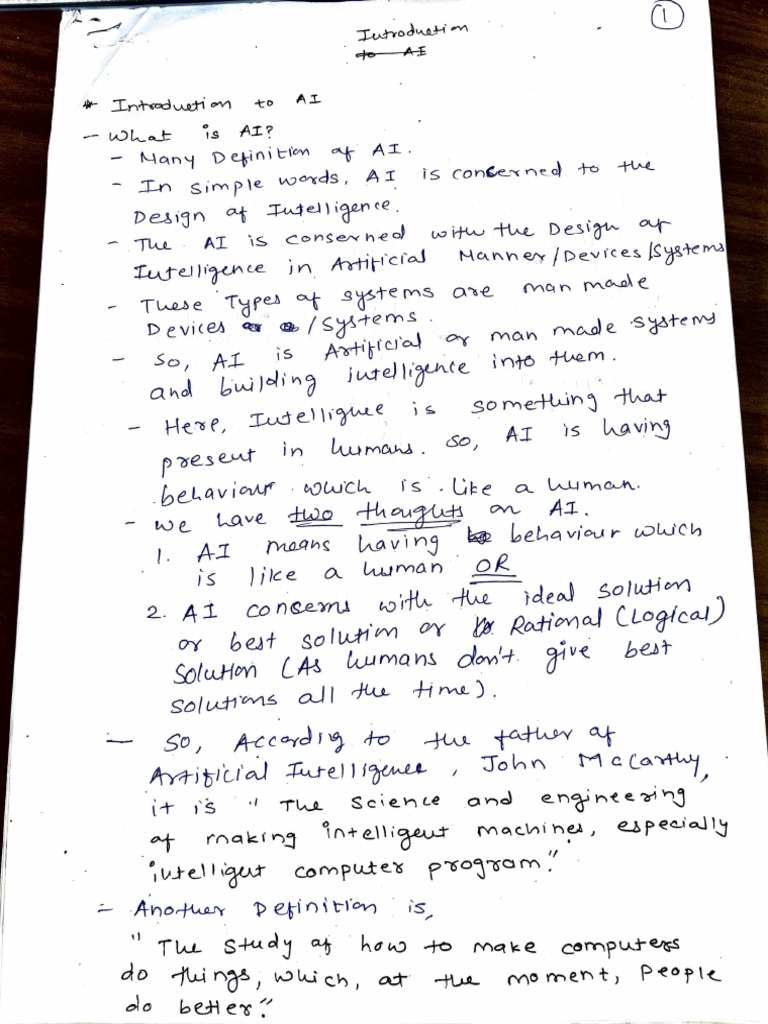 1
Introduction
to AI
* Introduction to AI
- What is AI?
- Many Definition of AI.
- In simple words, AI is concerned to the
Design of Intelligence.
- The AI is conserned with the Design of
Intelligence in Artificial Manner/Devices/Systems
- These Types of systems are man made
Devices /Systems.
- So, AI is Artificial or man made systems
and building intelligence into them.
- Here, Intelligence is something that
present in humans. So, AI is having
behaviour which is like a human.
- We have two thoughts on AI.
1. AI means having behaviour which
is like a human OR
2. AI concerns with the ideal solution
or best solution or Rational (Logical)
solution (As humans don't give best
solutions all the time).
- So, According to the father of
Artificial Intelligence, John McCarthy,
it is "The Science and engineering
of making intelligent machines, especially
intelligent computer program."
- Another Definition is,
"The Study of how to make computers
do things, which, at the moment, People
do better."